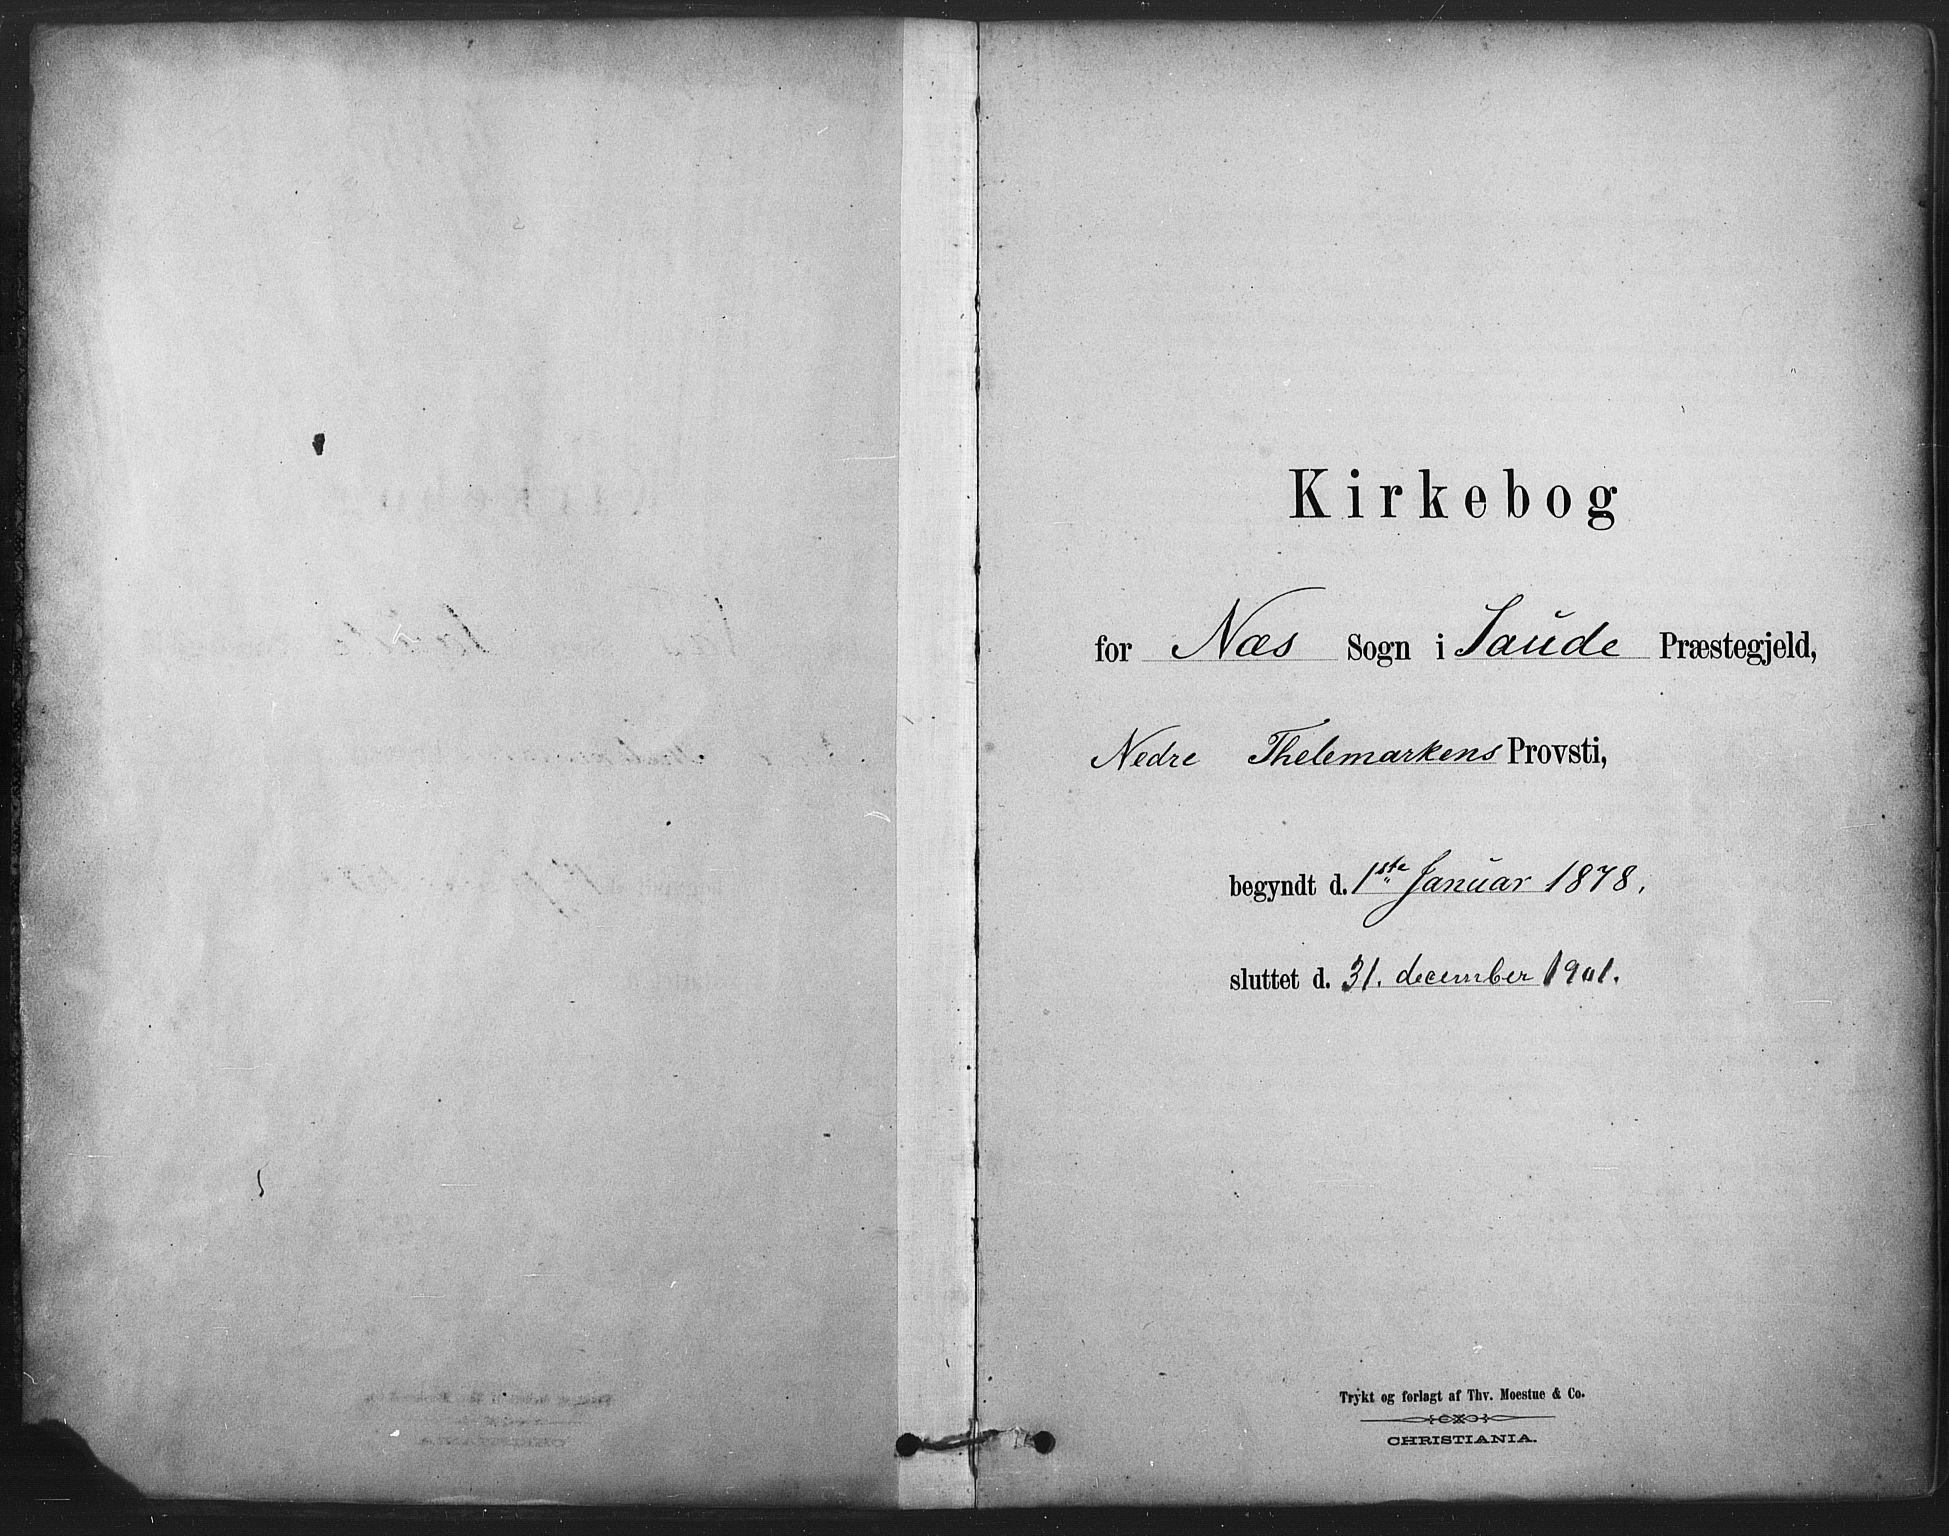 Kirkebog
for Næs Sogn i Saude Præstegjeld,
Nedre Thelemarkens Provsti,
begyndt d. 1ste Januar 1878.
sluttet d. 31. december 1901.
Trykt og forlagt af Thv. Moestue & Co.
CHRISTIANIA.